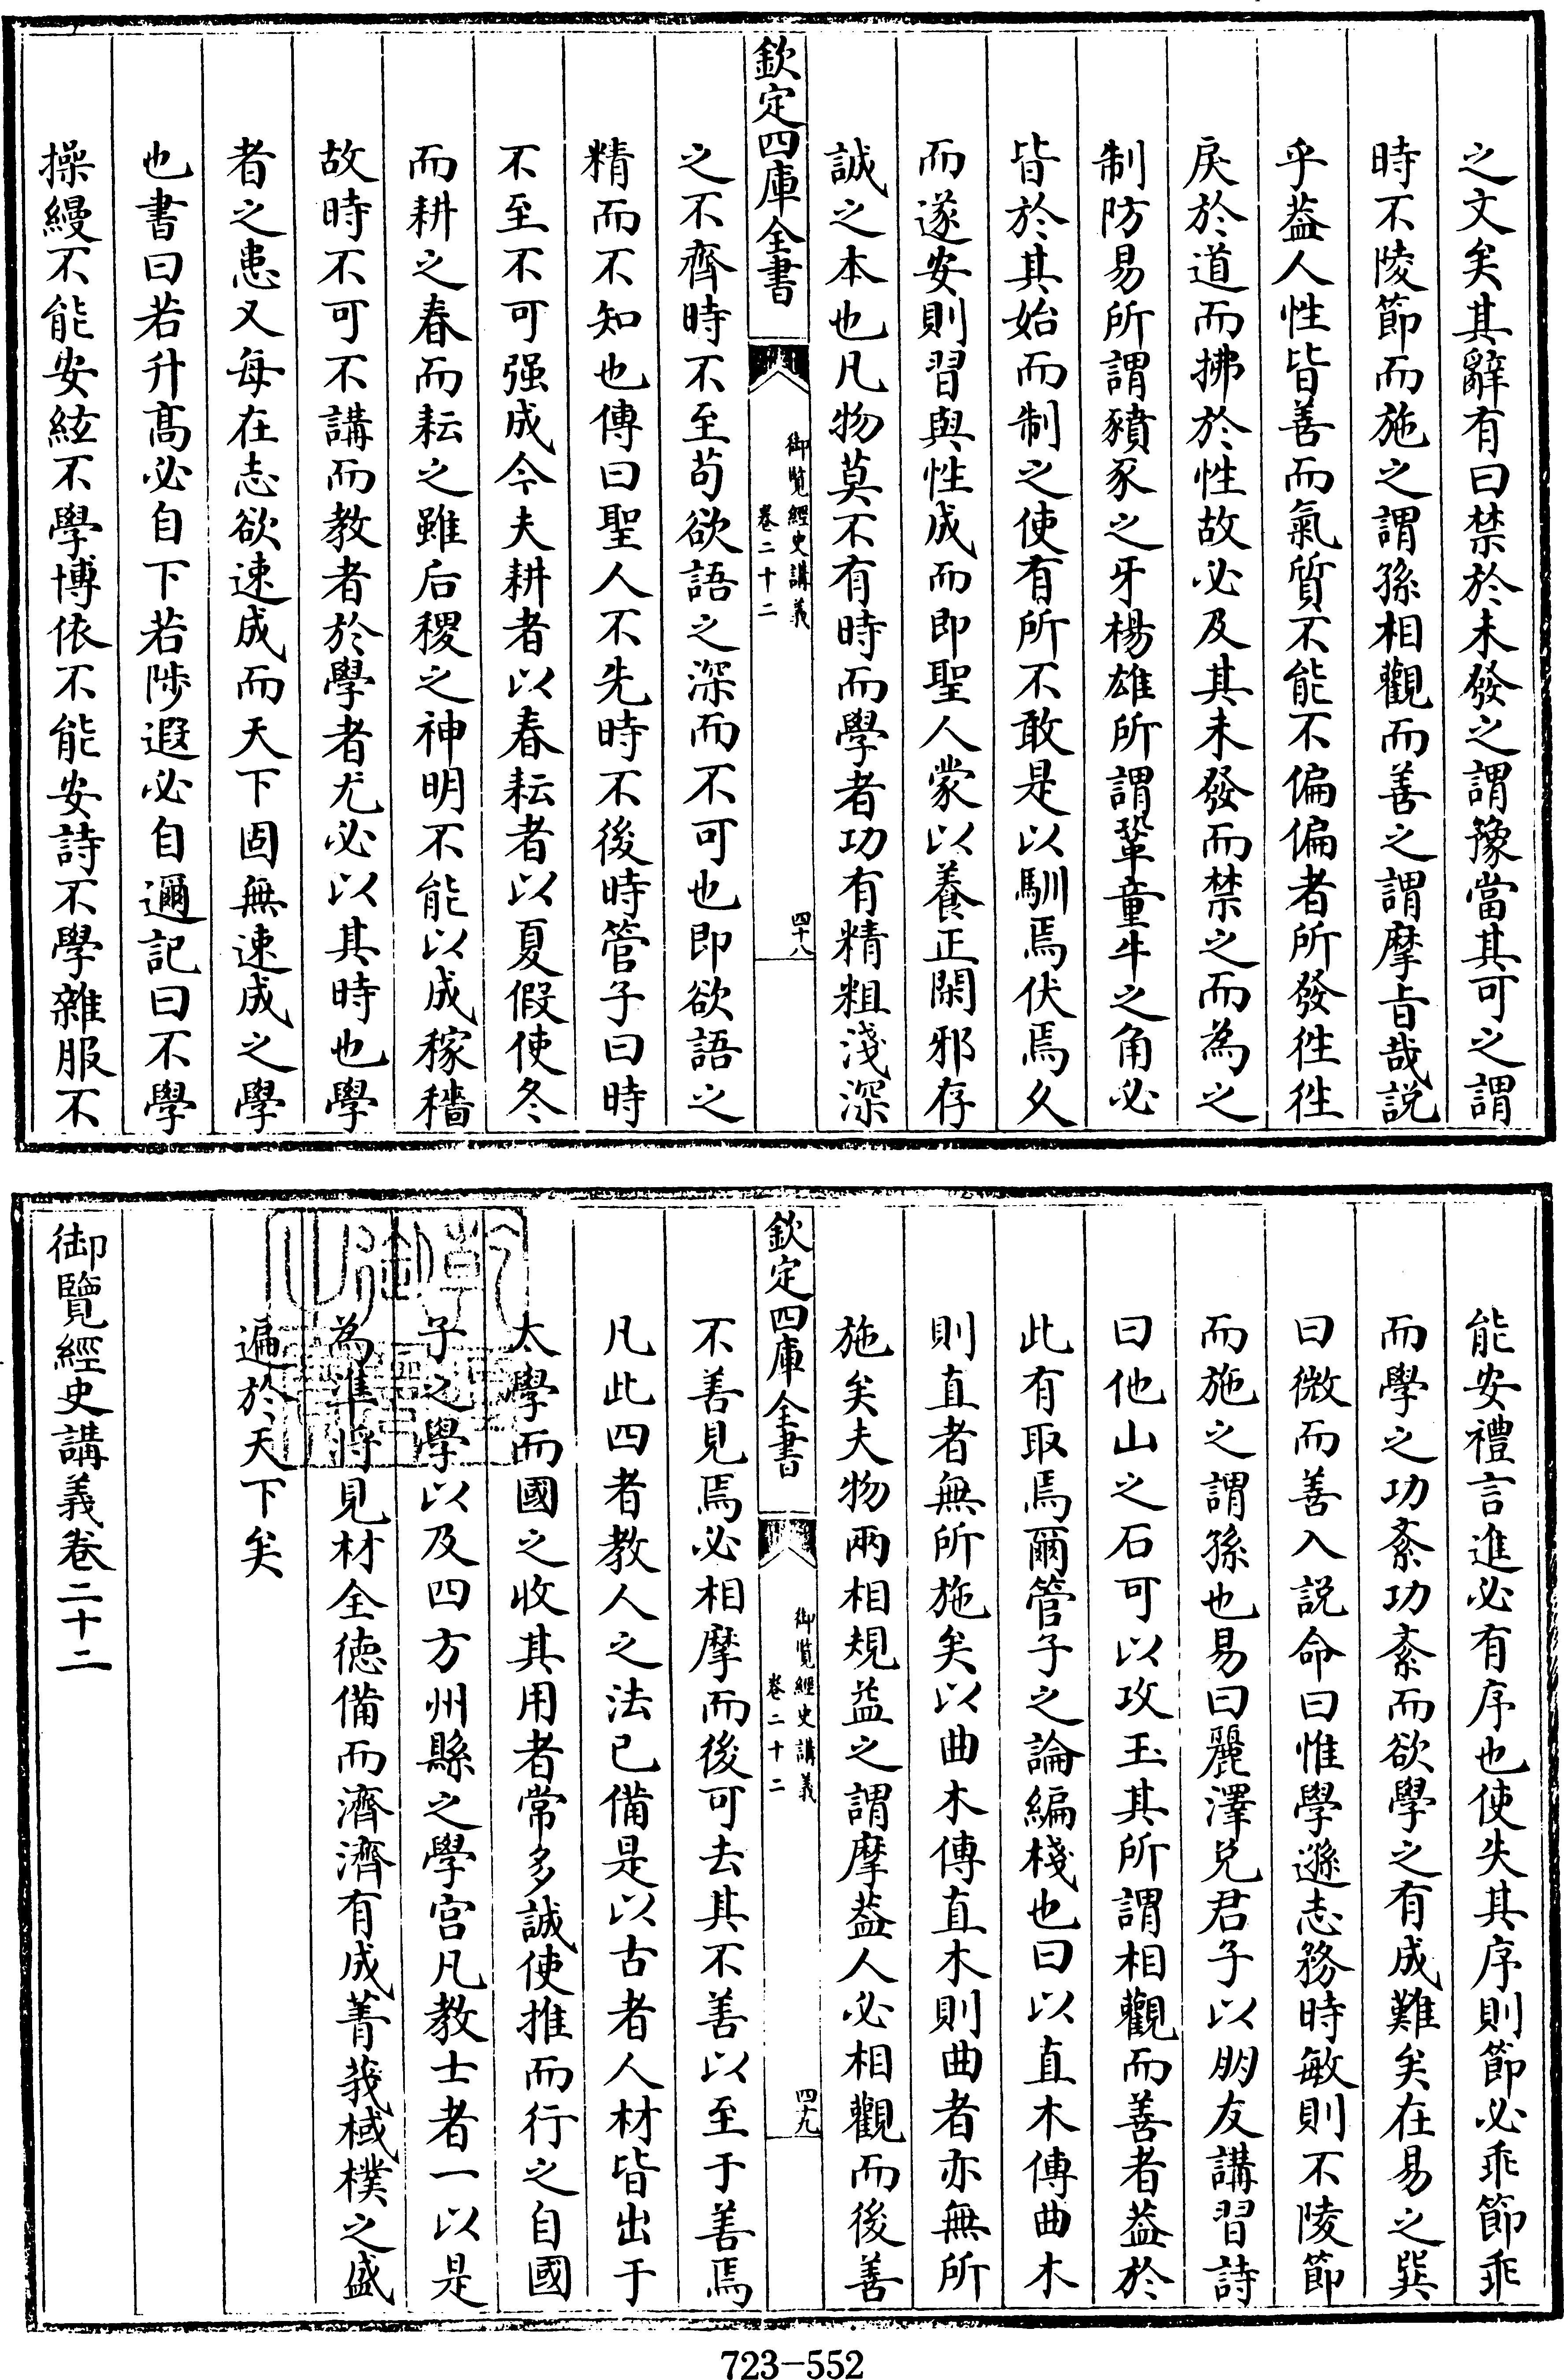 之文矣其辭有曰禁於未發之謂豫當其可之謂
時不陵節而施之謂孫相觀而善之謂摩旨哉説
乎葢人性皆善而氣質不能不偏偏者所發徃徃
戾於道而拂於性故必及其未發而禁之而為之
制防易所謂豶豕之牙楊雄所謂鞏童牛之角必
皆於其始而制之使有所不敢是以馴焉伏焉久
而遂安則習與性成而即聖人蒙以養正閑邪存
誠之本也凡物莫不有時而學者功有精粗淺深
欽定四庫全書
御覽經史講義
卷二十二
四十八
之不齊時不至苟欲語之深而不可也即欲語之
精而不知也傳曰聖人不先時不後時管子曰時
不至不可强成今夫耕者以春耘者以夏假使冬
而耕之春而耘之雖后稷之神明不能以成稼穡
故時不可不講而教者於學者尤必以其時也學
者之患又每在志欲速成而天下固無速成之學
也書曰若升髙必自下若陟遐必自邇記曰不學
操縵不能安絃不學博依不能安詩不學雜服不
能安禮言進必有序也使失其序則節必乖節乖
而學之功紊功紊而欲學之有成難矣在易之巽
曰微而善入説命曰惟學遜志務時敏則不陵節
而施之謂孫也易曰麗澤兑君子以朋友講習詩
曰他山之石可以攻玉其所謂相觀而善者葢於
此有取焉爾管子之論編棧也曰以直木傳曲木
則直者無所施矣以曲木傳直木則曲者亦無所
施矣夫物兩相規益之謂摩葢人必相觀而後善
欽定四庫全書
御覽經史講義
卷二十二
四十九
不善見焉必相摩而後可去其不善以至于善焉
凡此四者教人之法已備是以古者人材皆出于
太學而國之收其用者常多誠使推而行之自國
子之學以及四方州縣之學宫凡教士者一以是
為準將見材全徳備而濟濟有成菁莪棫樸之盛
遍於天下矣
御覽經史講義卷二十二
723-552